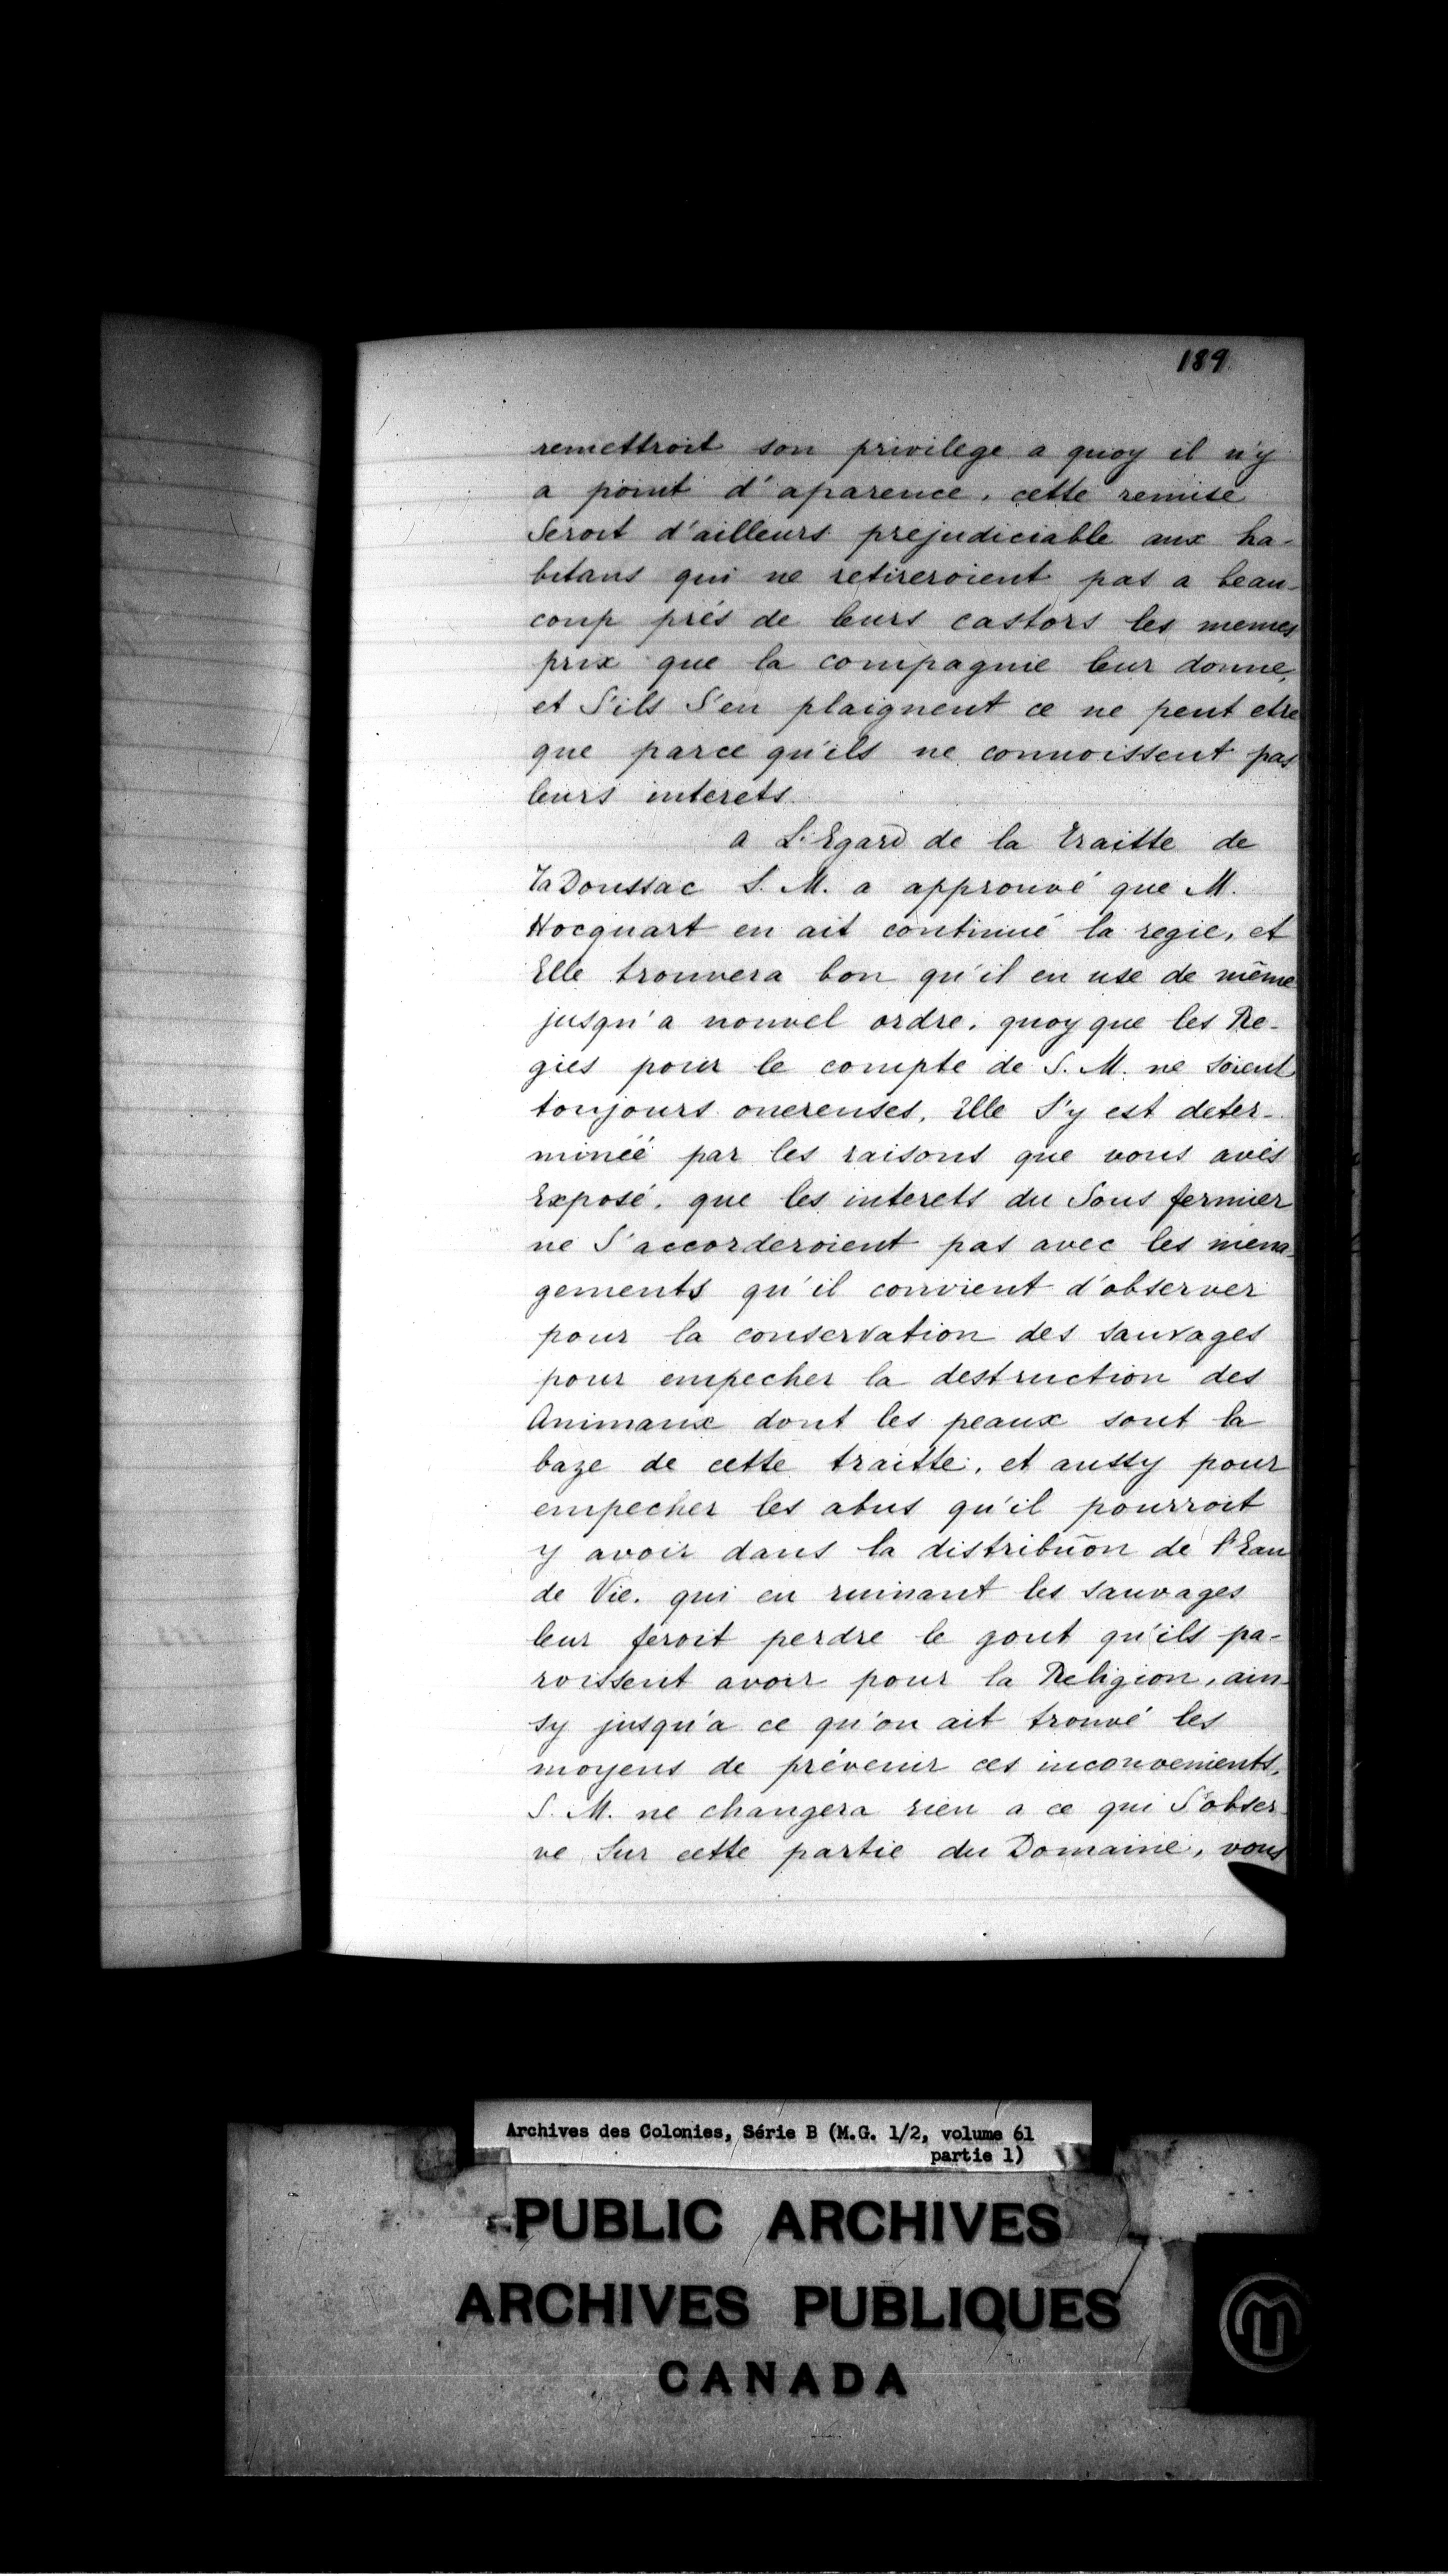 189
remettroit son privilege a quoy il n'y
a point d'aparence, cette remise
Seroit d'ailleurs prejudiciable aux ha-
bitans qui ne retireroient pas a beau-
coup prés de leurs castors les memes
prix que la compagnie leur donne,
et S'ils S'en plaignent ce ne peut etre
que parce qu'ils ne connoissent pas
leurs interets.
a L'Egard de la Traitte de
TaDoussac S. M. a approuvé que M.
Hocquart en ait continué la regie, et
Elle trouvera bon qu'il en use de même
jusqu'a nouvel ordre, quoy que les Re-
gies pour le compte de S. M. ne soient
toujours onereuses, Elle S'y est deter-
minéé par les raisons que vous avés
Exposé, que les interets du Sous fermier
ne S'accorderoient pas avec les mena-
gements qu'il convient d'observer
pour la conservation des sauvages
pour empecher la destruction des
Animaux dont les peaux sont la
baze de cette traitte, et aussy pour
empecher les abus qu'il pourroit
y avoir dans la distribuõn de l'Eau
de Vie, qui en ruinant les sauvages
leur feroit perdre le gout qu'ils pa-
roissent avoir pour la Religion, ain-
sy jusqu'a ce qu'on ait trouvé les
moyens de prévenir ces inconvenients,
S. M. ne changera rien a ce qui S'obser-
ve Sur cette partie du Domaine, vous
Archives des Colonies, Série B (M.G. 1/2, volume 61
partie 1)
PUBLIC ARCHIVES
ARCHIVES PUBLIQUES
CANADA